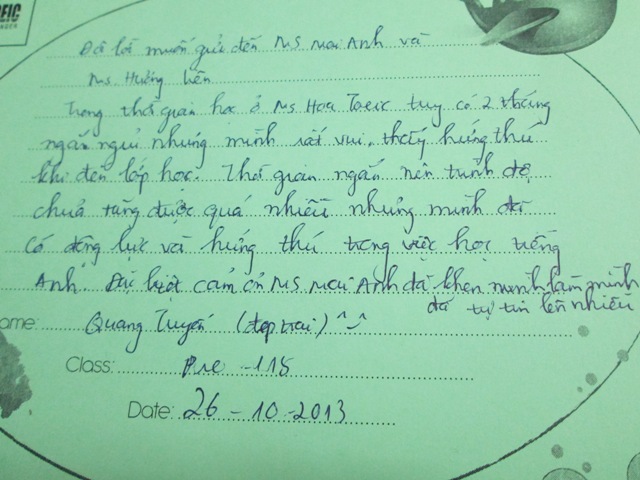 EIC
Đôi lời muốn gửi đến Ms Mai Anh và
Ms. Hương Liên
Trong thời gian học ở Ms Hoa Toeic tuy có 2 tháng
ngắn ngủi nhưng mình rất vui, thấy hứng thú
khi đến lớp học. Thời gian ngắn nên trình độ
chưa tăng được quá nhiều nhưng mình đã
có động lực và hứng thú trong việc học tiếng
Anh. Đặc biệt cảm ơn Ms Mai Anh đã khen mình làm mình
đã tự tin lên nhiều
ame: Quang Tuyến (đẹp trai) ^_^
Class: Pre - 115
Date: 26 - 10 - 2013